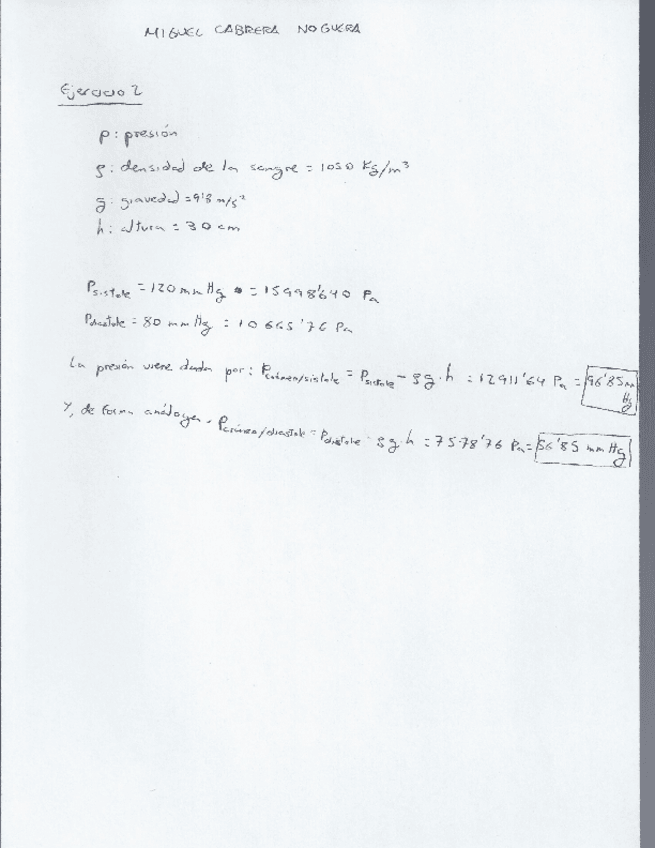 MIGUEL CABRERA NOGUERA
Ejercicio 2
p: presión
ρ: densidad de la sangre = 1050 Kg/m³
g: gravedad = 9'8 m/s²
h: altura = 30 cm
Psístole = 120 mm Hg = 15998'640 Pa
Pdiástole = 80 mm Hg = 10665'76 Pa
La presión viene dada por: Pcráneo/sístole = Psístole - ρg·h = 12911'64 Pa = 96'85 mm Hg
Y, de forma análoga, Pcráneo/diástole = Pdiástole - ρg·h = 7578'76 Pa = 56'85 mm Hg